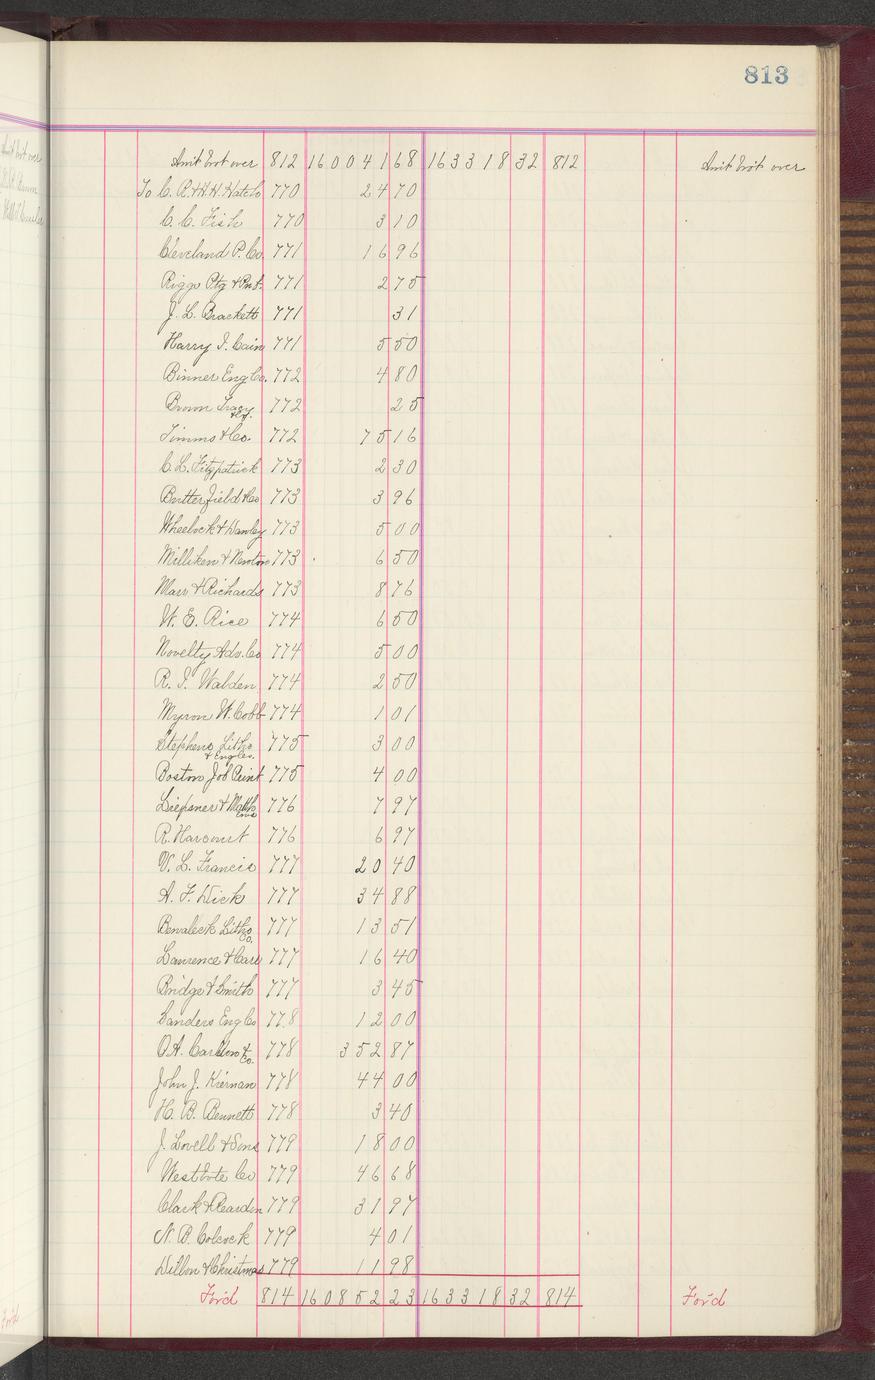 813
Amt brot over 812 160041 68 163318 32 812 Amt brot over
To C. R. & H. H. Hatch 770 24 70
C. C. Fish 770 3 10
Cleveland P. Co. 771 16 96
Riggs Ptg & Pub. 771 2 75
J. L. Brackett 771 31
Harry I. Cain 771 5 50
Binner Eng Co. 772 4 80
Brown Tracy & Co. 772 25
Timms & Co. 772 75 16
C. L. Fitzpatrick 773 2 30
Butterfield & Co 773 3 96
Wheelock & 773 5 00
Milliken & Newton 773 6 50
Marr & Richards 773 8 76
W. E. Rice 774 6 50
Novelty Adv. Co 774 5 00
R. I. Walden 774 2 50
Myron W. Cobb 774 1 01
Stephens Litho & Eng Co. 775 3 00
Boston Job Print 775 4 00
776 7 97
R. Harcourt 776 6 97
V. L. Francis 777 20 40
A. F. Dick 777 34 88
Litho Co. 777 13 51
Lawrence & 777 16 40
Bridge & Smith 777 3 45
Sanders Eng Co 778 12 00
O. A. & Co. 778 352 87
John J. Kiernan 778 44 00
H. B. Bennett 778 3 40
J. Lovell & Sons 779 18 00
Westbote Co 779 46 68
Clark & Rearden 779 31 97
N. B. Colcock 779 4 01
Dillon & Christmas 779 11 98
For'd 814 160852 23 163318 32 814 For'd